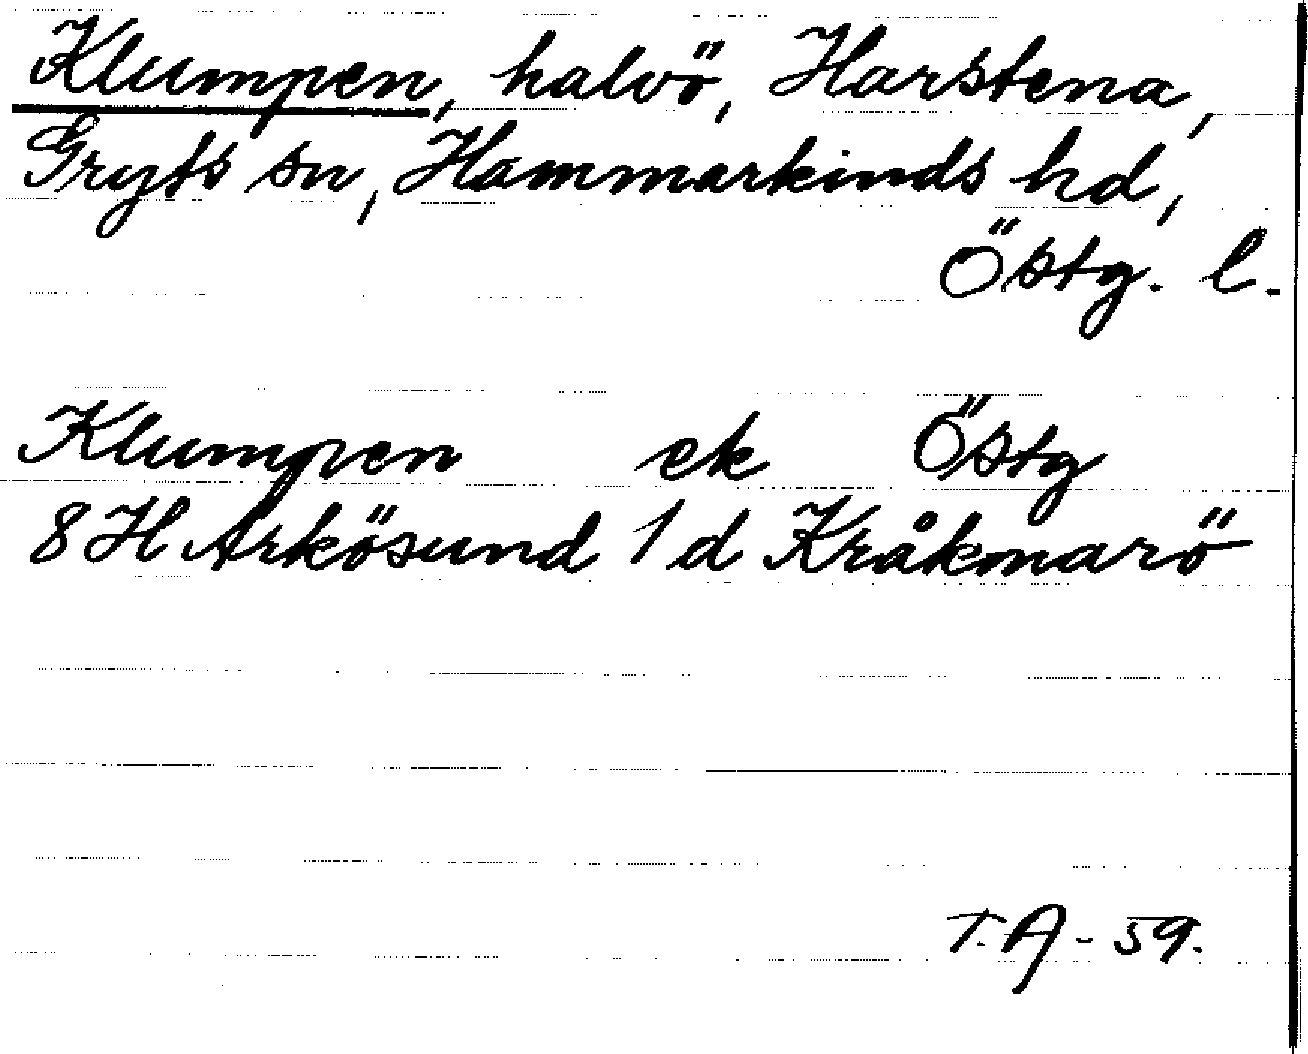 Klumpen, halvö, Harstena,
Gryts sn, Hammarkinds hd,
Östg. l.
Klumpen ek Östg
8 H Arkösund 1 d Kråkmarö
T. A - 59.